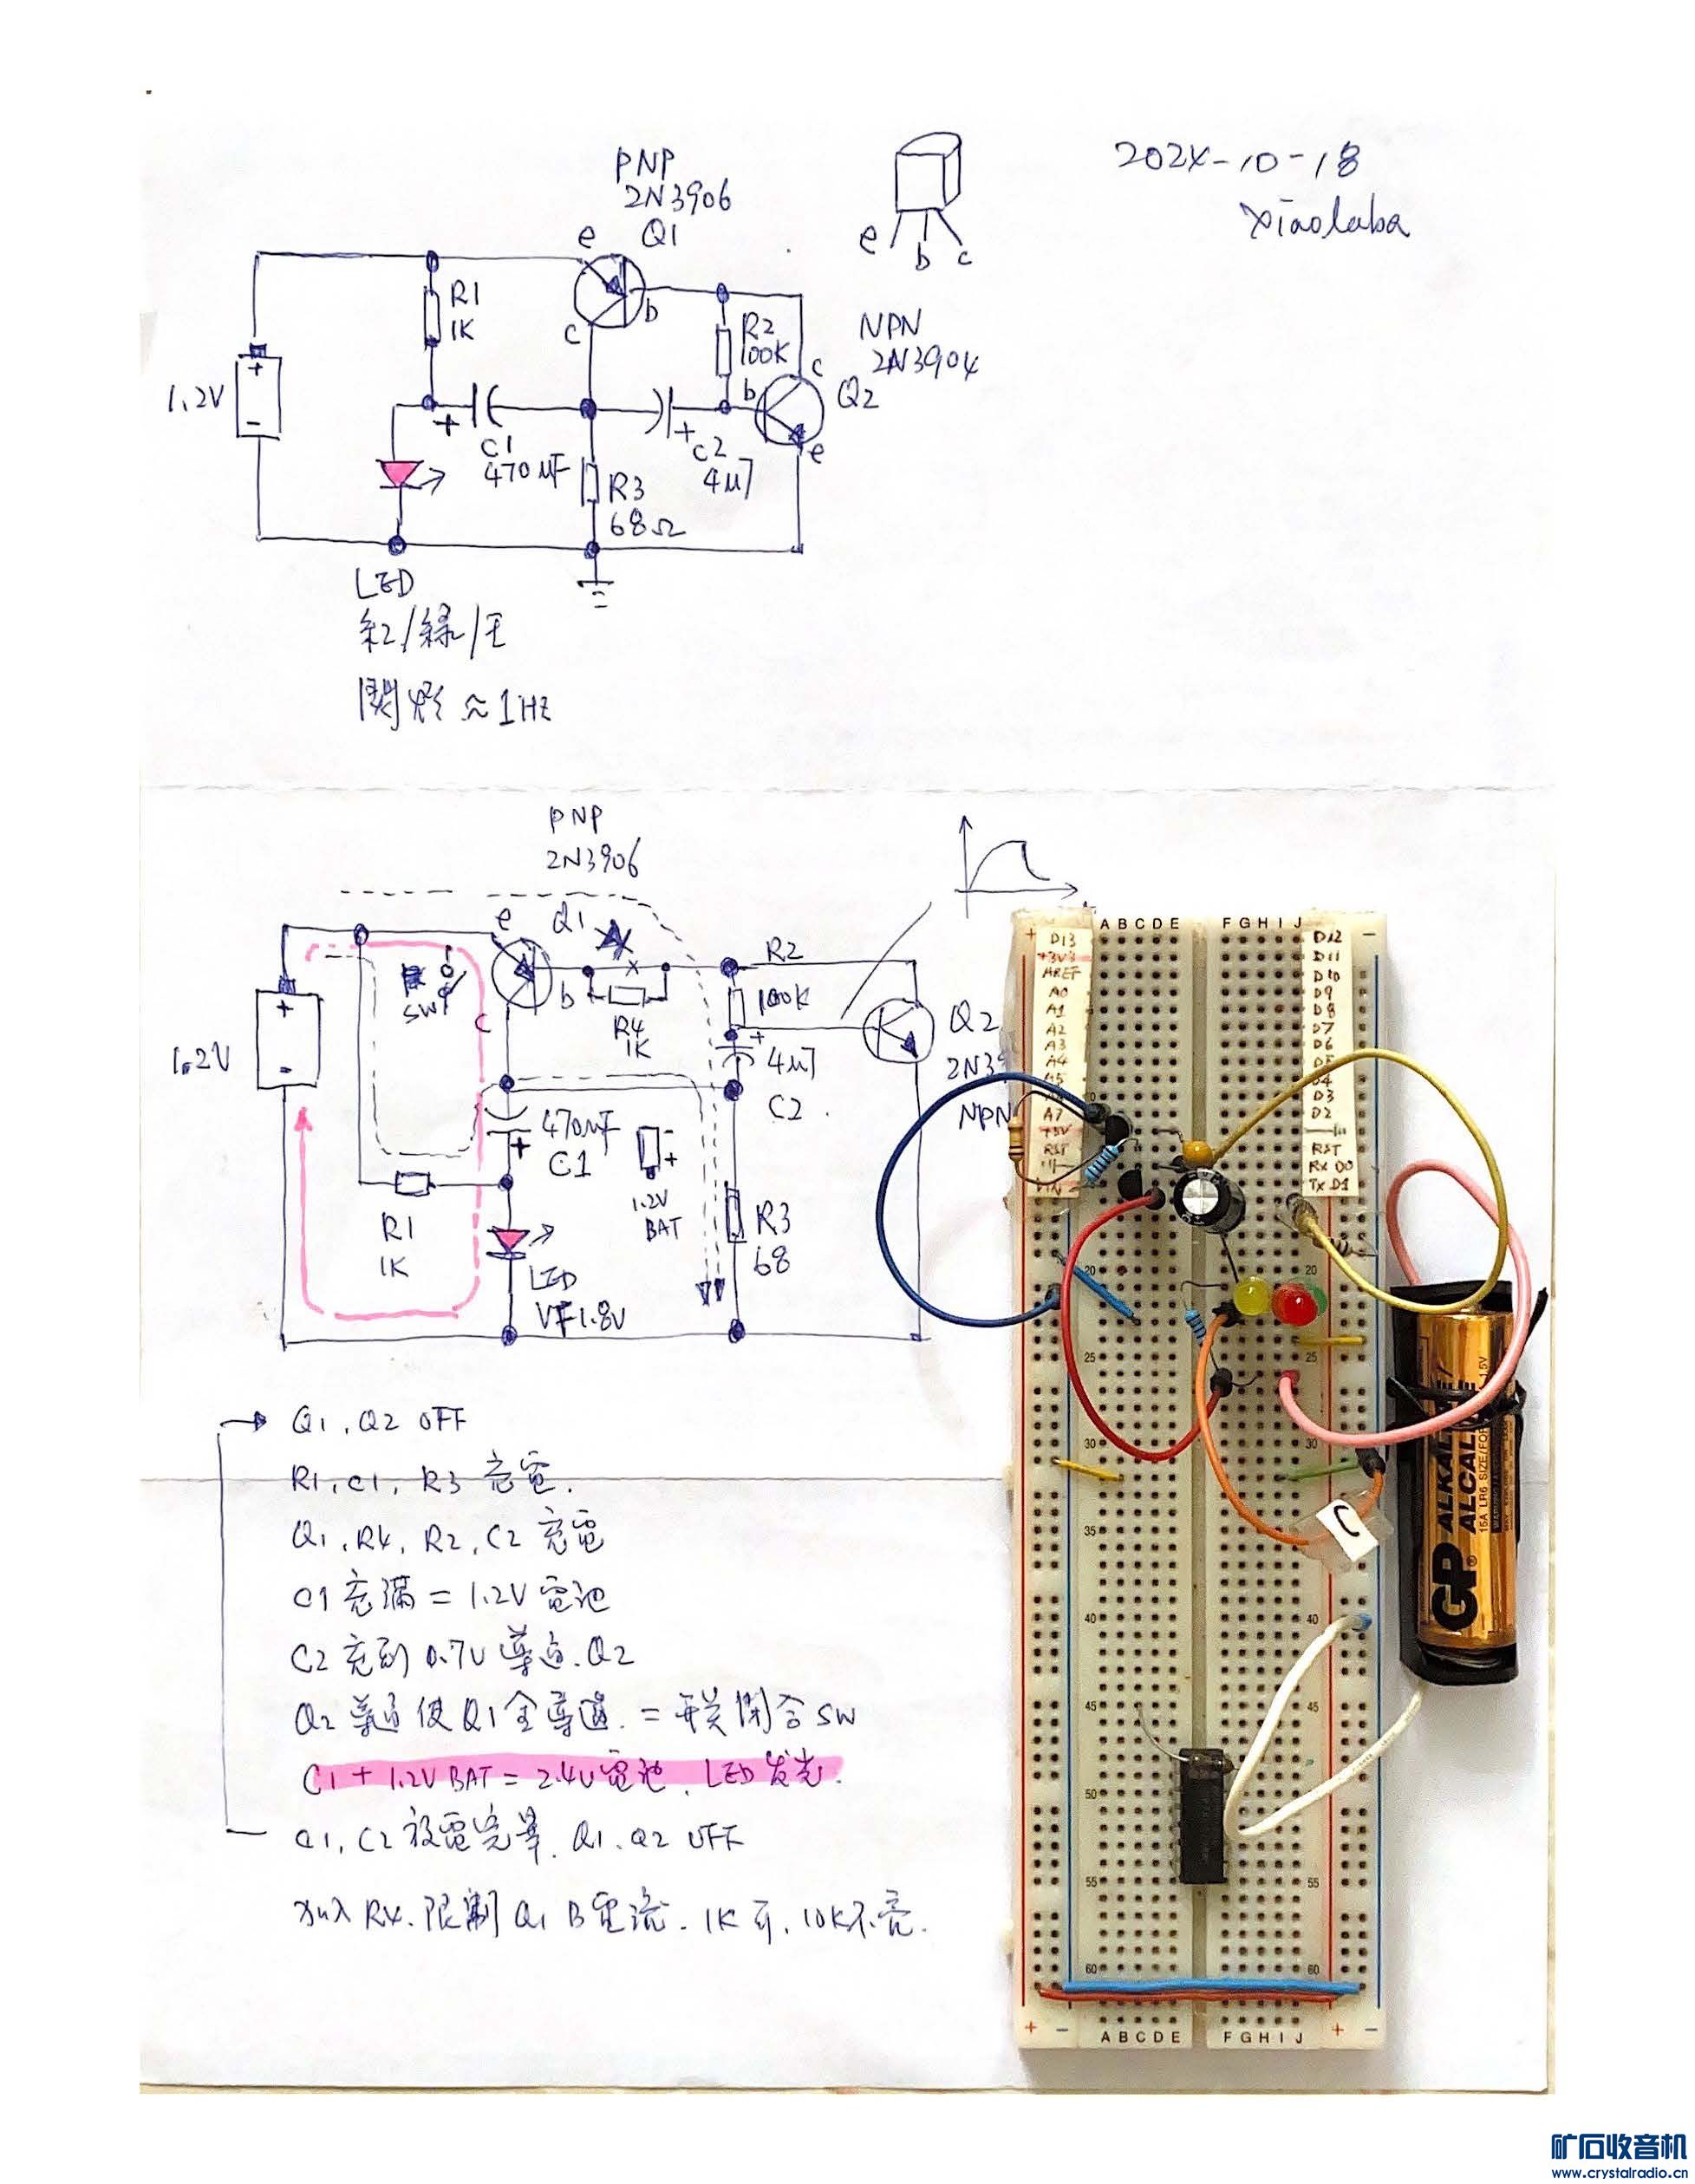 2024-10-18
xiaolaba
PNP
2N3906
Q1
e
b
c
e b c
R1
1K
1.2V
+
-
+
C1
470uF
R2
100K
NPN
2N3904
Q2
c
b
e
+
C2
4u7
R3
68Ω
LED
紅/綠/
閃燈≈1Hz
PNP
2N3906
e
Q1
b
c
SW
R4
1K
R2
100K
+
4u7
C2
Q2
2N39
NPN
1.2V
+
-
470uF
+
C1
-
+
1.2V
BAT
R1
1K
LED
VF1.8V
R3
68
Q1, Q2 OFF
R1, C1, R3 充電.
Q1, R4, R2, C2 充電
C1 充滿 = 1.2V 電池
C2 充到 0.7V 導通.Q2
Q2 導通 使 Q1 全導通. = 开关閉合 SW
C1 + 1.2V BAT = 2.4V 電池. LED 发光.
C1, C2 放電完畢. Q1. Q2 OFF
加入 R4. 限制 Q1 B 電流. 1K 可, 10K不亮.
+ A B C D E F G H I J -
D13
+3V3
AREF
A0
A1
A2
A3
A4
A5
A7
+5V
RST
VIN
D12
D11
D10
D9
D8
D7
D6
D5
D4
D3
D2
RST
RX D0
TX D1
20 20
25 25
30 30
35
40 40
45 45
50 50
55 55
60 60
+ - A B C D E F G H I J + -
C
GP®
ALKALINE/
ALCALINE
15A LR6 SIZE/FOR 1.5V
矿石收音机
www.crystalradio.cn